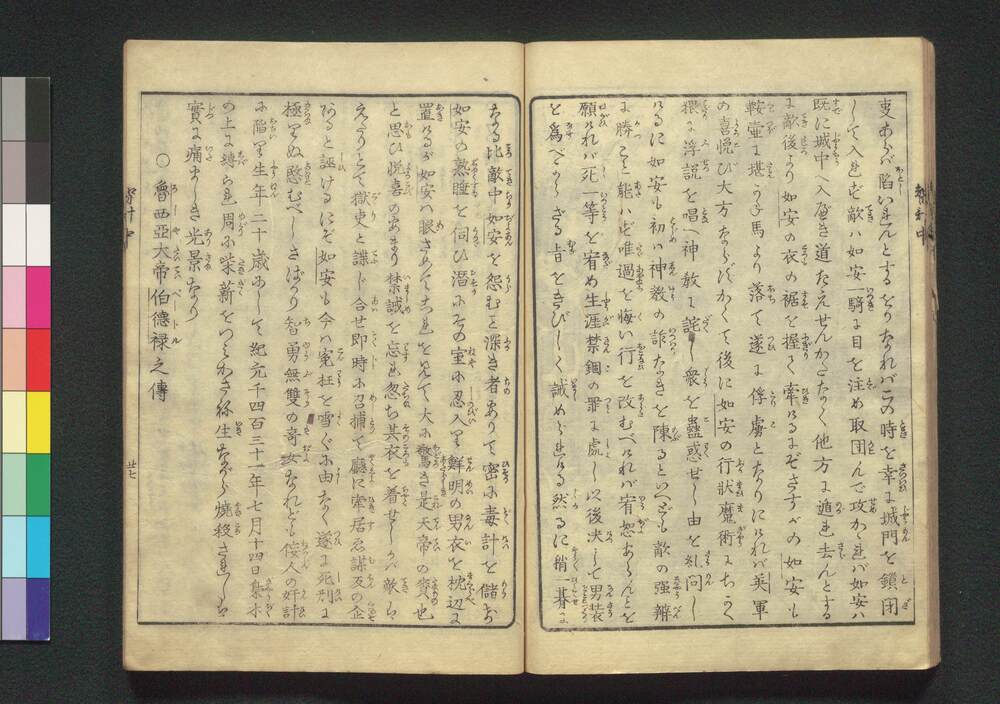 支あらバ陥いれんとするをりなれバこの時を幸に城門を鎖閉
して入れず敵ハ如安一騎に目を注め取囲んで攻かゝれバ如安ハ
既に城中へ入べき道たえせんかたなく他方に遁れ去んとする
に敵後より如安の衣の裾を握て牽るにぞさすがの如安も
鞍壷に堪かね馬より落て遂に俘虜となりにけれバ英軍
の喜悦び大方ならずかくて後に如安の行状魔術にちかく
猥に浮説を唱へ神教に詫し衆を蠱惑せし由を糺問し
けるに如安も初め神教の詐なきを陳るといへども敵の強辯
に勝こと能ハず唯過を悔い行を改むべけれバ宥恕あらんとを
願けれバ死一等を宥め生涯禁錮の罪に處し以後决して男装
を為べからざる旨をきびしく誡めらける然るに稍一碁に
なる比敵中如安を怨むと深き者ありて密に毒計を儲け
如安の熟睡を伺ひ潜にその室に忍入り鮮明の男衣を枕辺に
置けるが如安ハ眼さめてこれを見て大に驚き是天帝の賚也
と思ひ悦喜のあまり禁誡を忘れ忽ち其衣を着せしかバ敵ら
えたりとて獄吏と諜し合せ即時に召捕て廳に牽居ゑ謀反の企
ありと誣けるにぞ如安も今ハ冤枉を雪ぐに由なく遂に死刑に
極りぬ愍むべしさばかり智勇無雙の奇女なれども侫人の奸計
に陥り生年二十歳にして紀元千四百三十一年七月十四日梟木
の上に縛られ周に柴薪をつみかさね生ながら焼殺されしハ
實に痛ましき光景なり
○魯西亞大帝伯德禄之傳
廿七